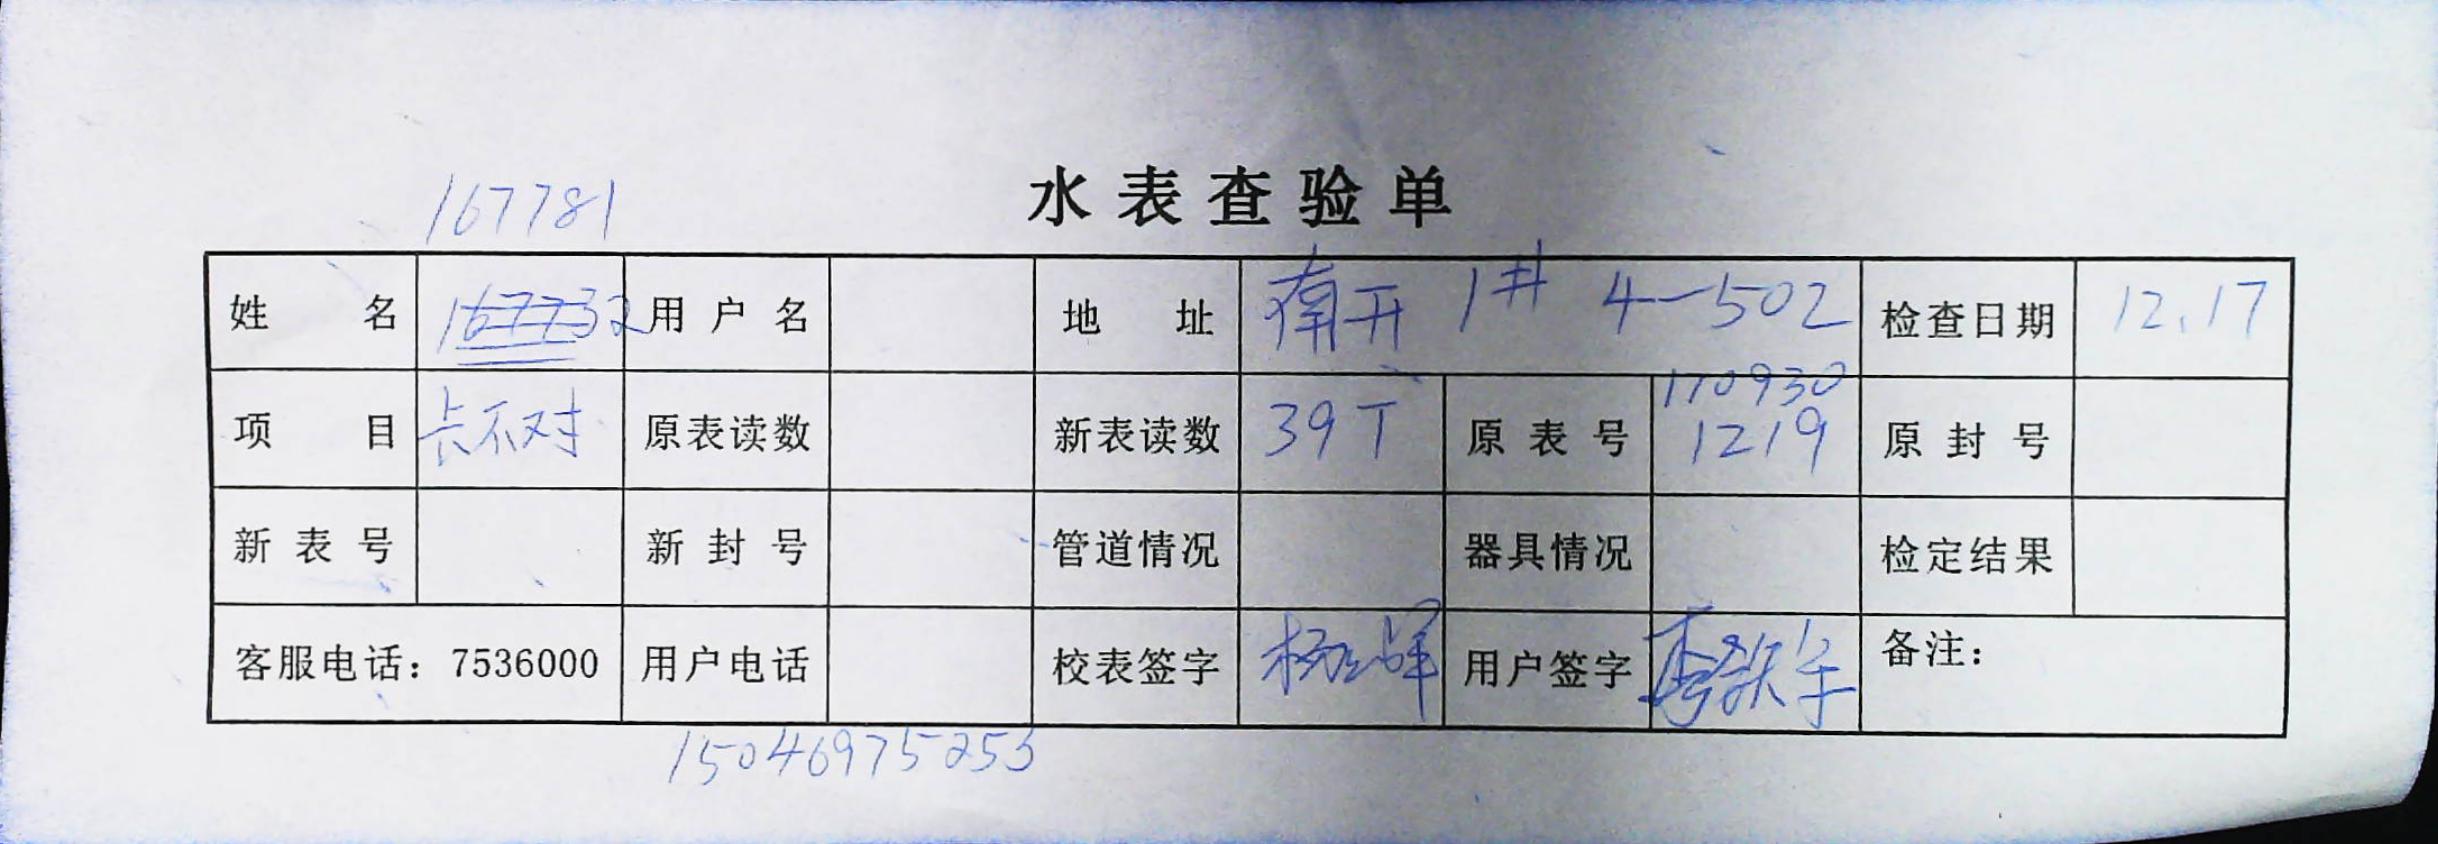 水表查验单
167781
姓名 167732 用户名 地址 南开 1# 4-502 检查日期 12.17
项目 卡不对 原表读数 新表读数 39T 原表号 170930 1219 原封号
新表号 新封号 管道情况 器具情况 检定结果
客服电话：7536000 用户电话 校表签字 用户签字 备注：
15046975253